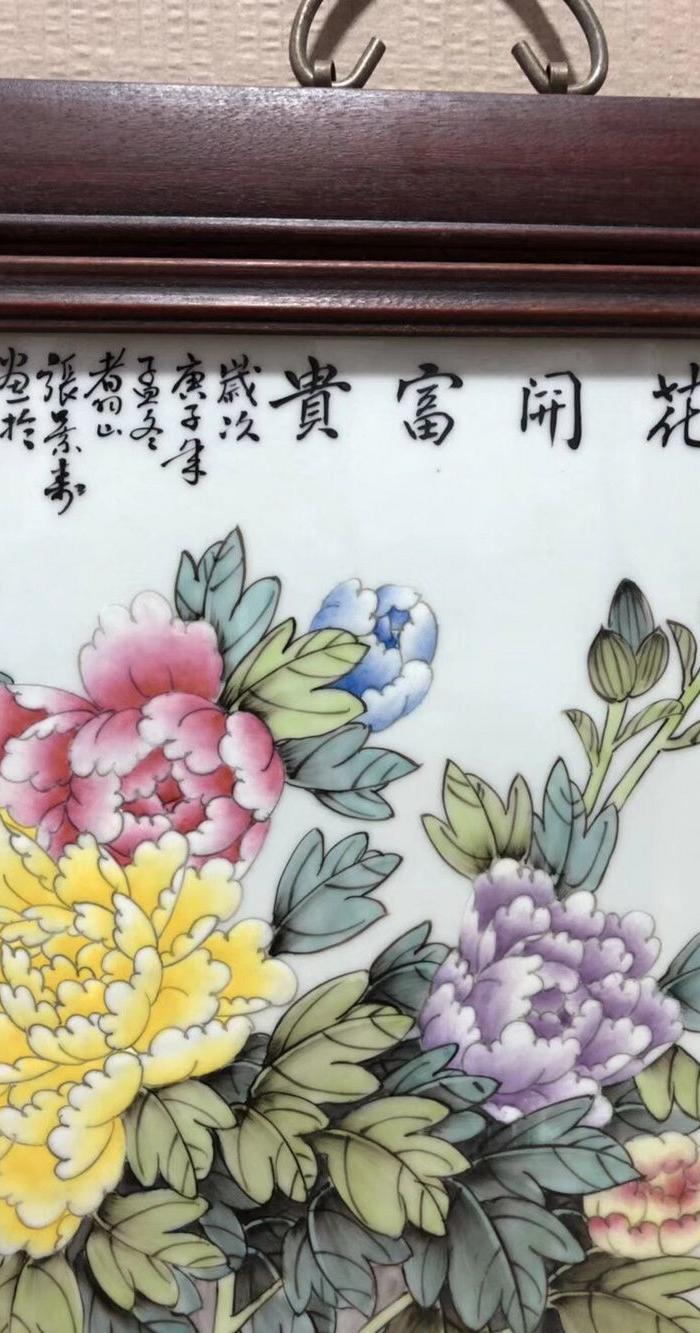 花開富貴
歲次
庚子年
孟冬
張景壽
畫於